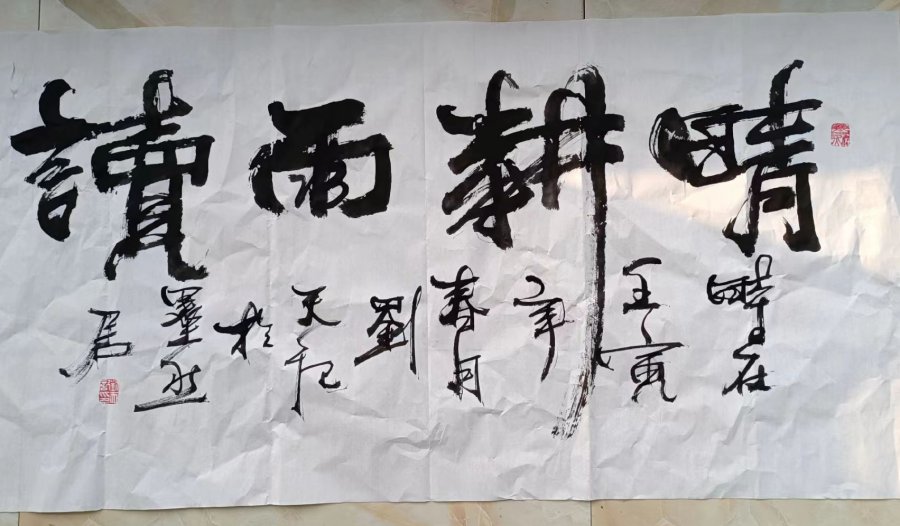 晴耕雨讀
時在
壬寅
年
春月
劉
天
於
墨
居